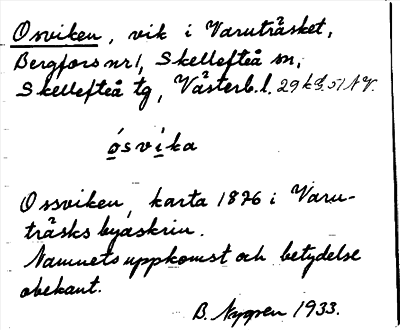 Osviken, vik i Varuträsket,
Bergfors nr 1, Skellefteå sn,
Skellefteå tg, Västerb. l. 29 kd. 51 NV.
ósvika
Ossviken, karta 1876 i Varu-
träsks byaskrin.
Namnets uppkomst och betydelse
obekant.
B. Nygren 1933.